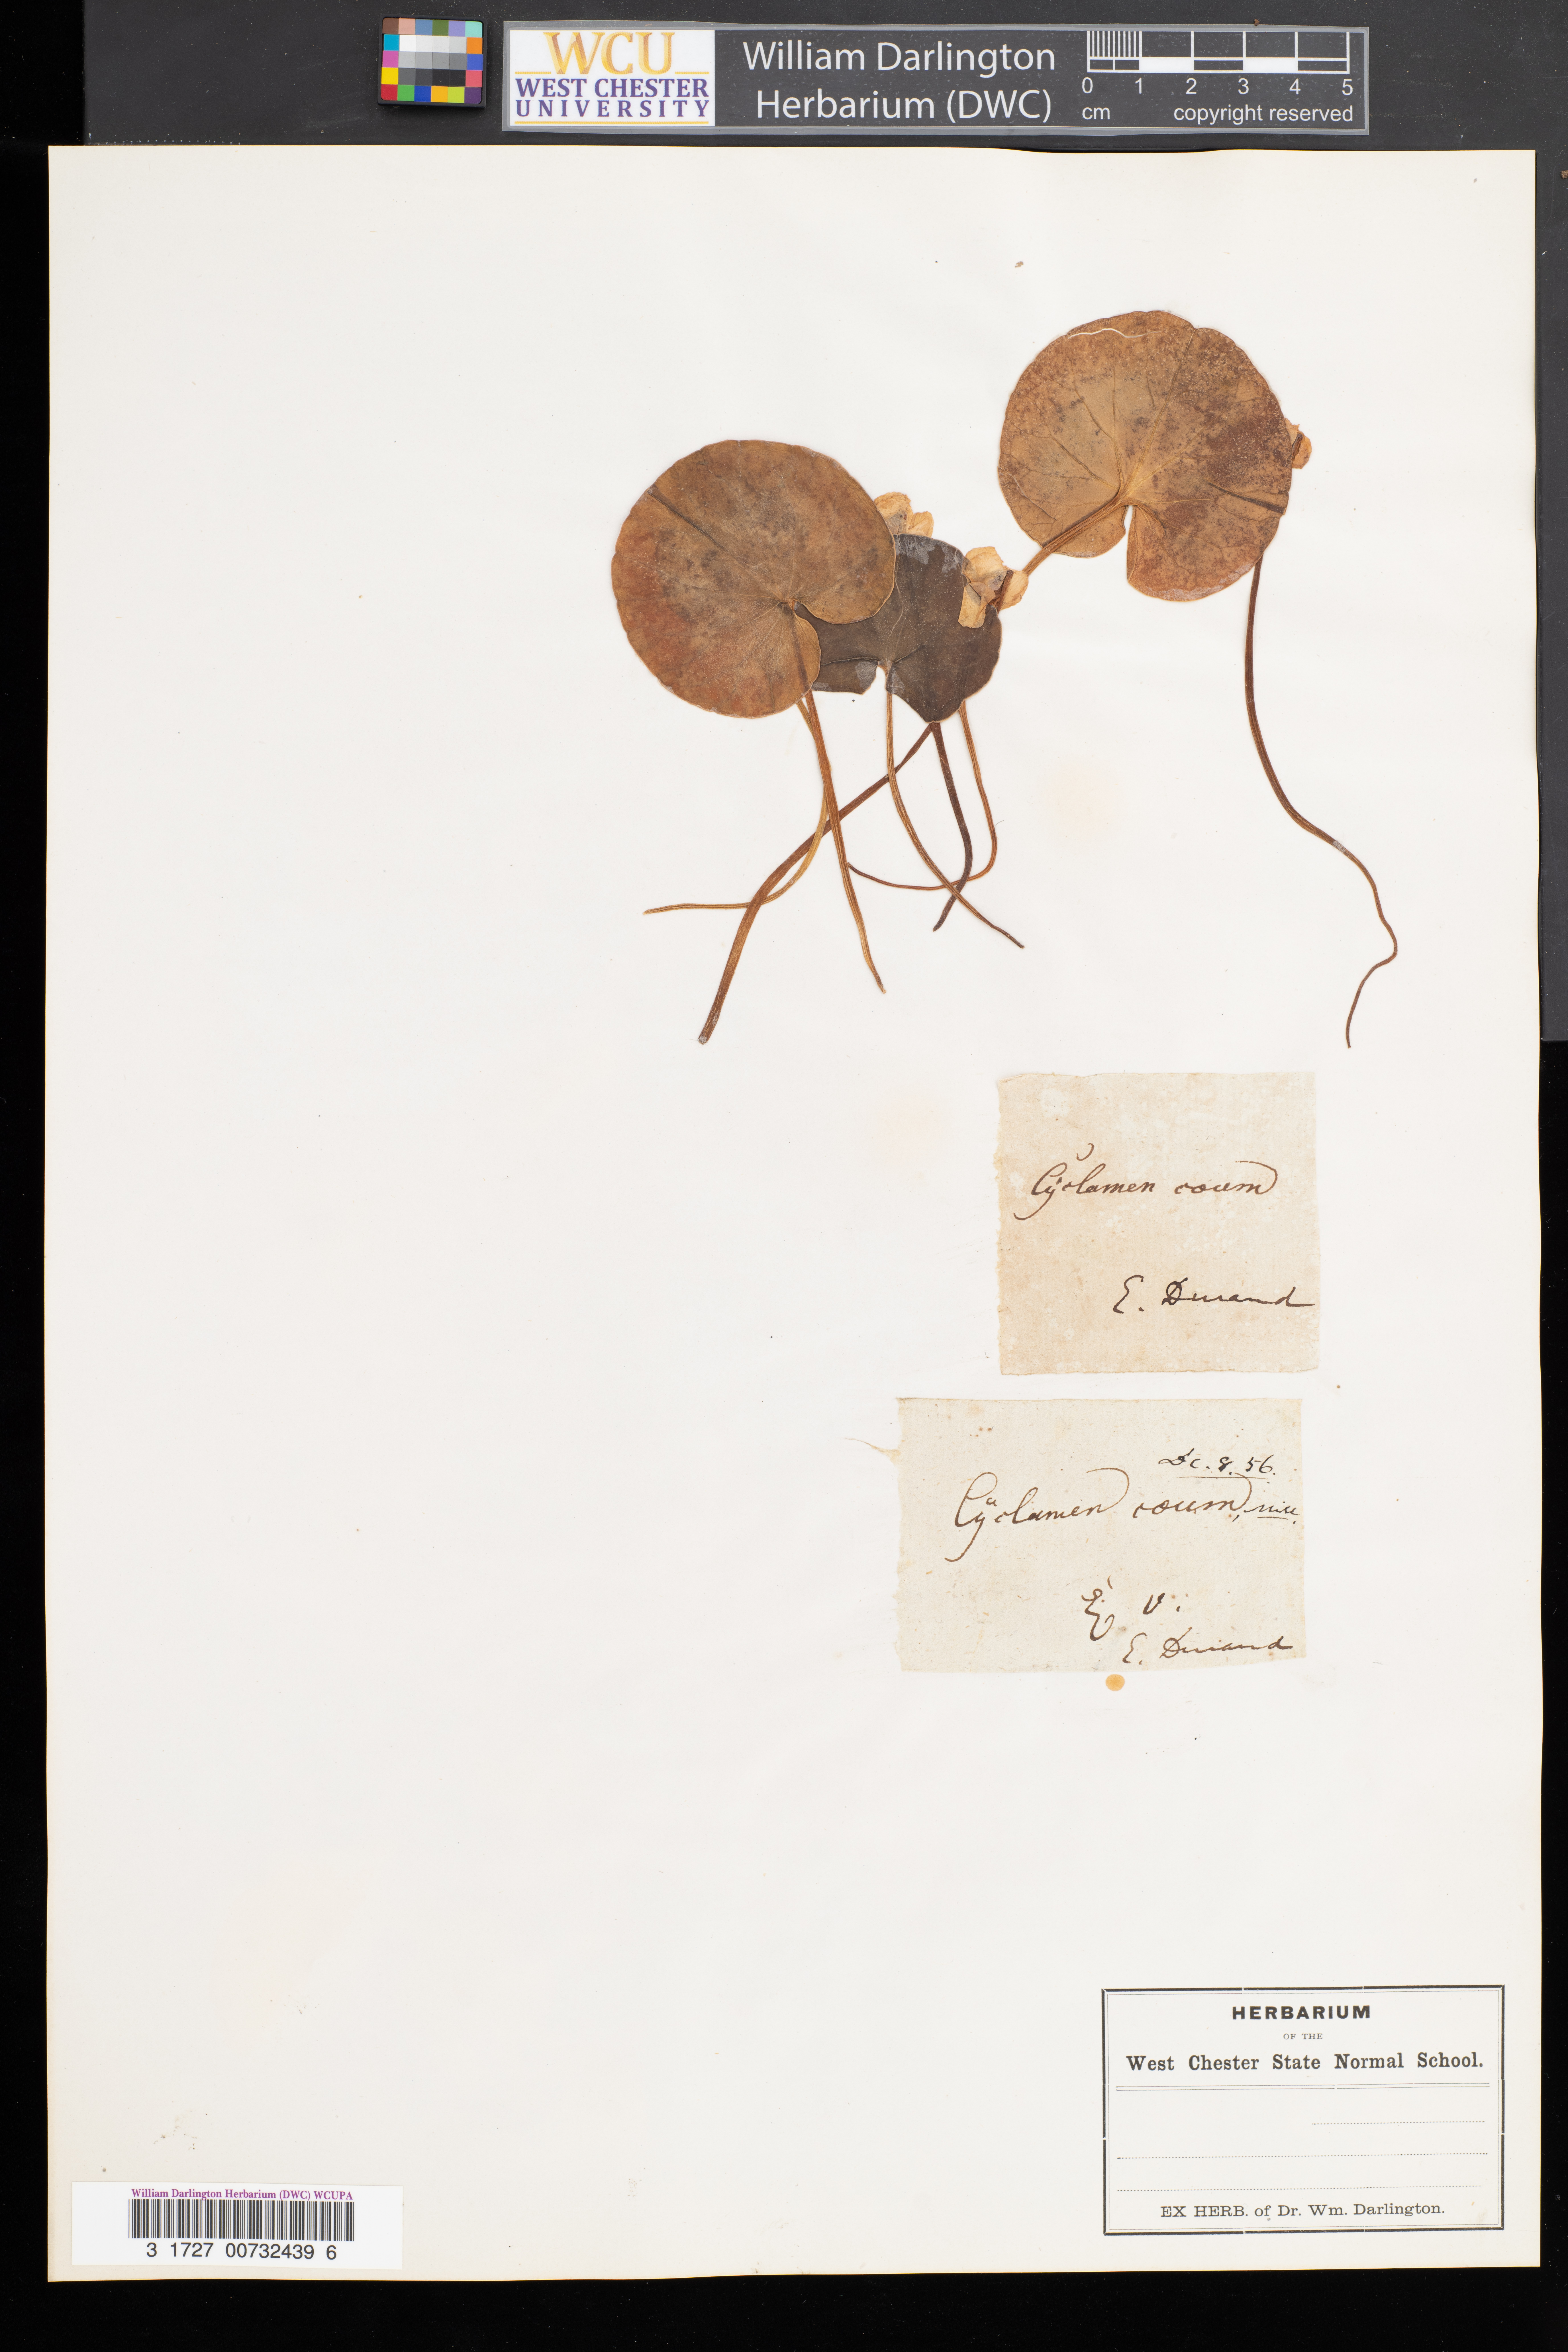 WCU
WEST CHESTER
UNIVERSITY
William Darlington
Herbarium (DWC)
0 1 2 3 4 5
cm copyright reserved
Cyclamen coum
E. Durand
Dc. 8. 56.
Cyclamen coum, Mill.
v.
E. Durand
HERBARIUM
OF THE
West Chester State Normal School.
EX HERB. of Dr. Wm. Darlington.
William Darlington Herbarium (DWC) WCUPA
3 1727 00732439 6